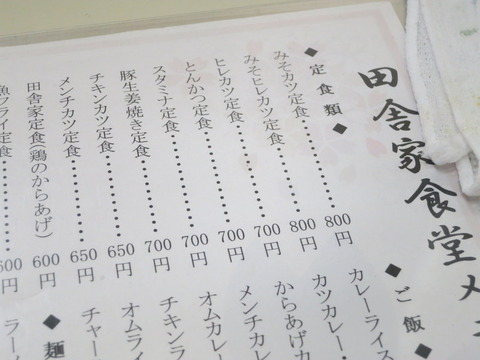 田舎家食堂メ
◆定食類◆
みそカツ定食・・・・・・・・800円
みそヒレカツ定食・・・・・・800円
ヒレカツ定食・・・・・・・・700円
とんかつ定食・・・・・・・・700円
スタミナ定食・・・・・・・・700円
豚生姜焼き定食・・・・・・・700円
チキンカツ定食・・・・・・・650円
メンチカツ定食・・・・・・・650円
田舎家定食(鶏のからあげ) 600円
魚フライ定食・・・・・・・・600円
◆ご飯
カレーライス
カツカレー
からあげカ
メンチカ
オムカレ
チキン
オムライ
チャー
◆麺
ラー